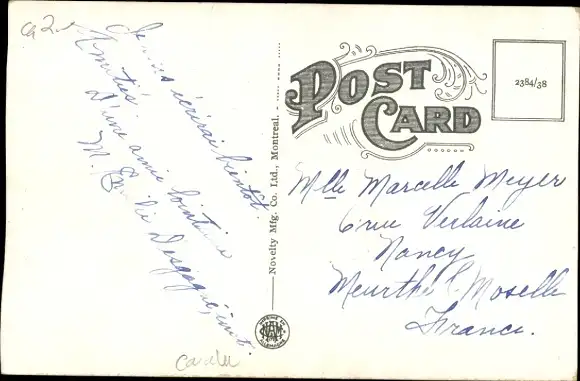 Je vous écrirai bientôt.
Amitiés.
D'une amie lointaine
M. Desgagné, inst.
Novelty Mfg. Co. Ltd., Montreal.
POST
CARD
2384/38
Mlle Marcelle Meyer
6 rue Verlaine
Nancy
Meurthe & Moselle
France.